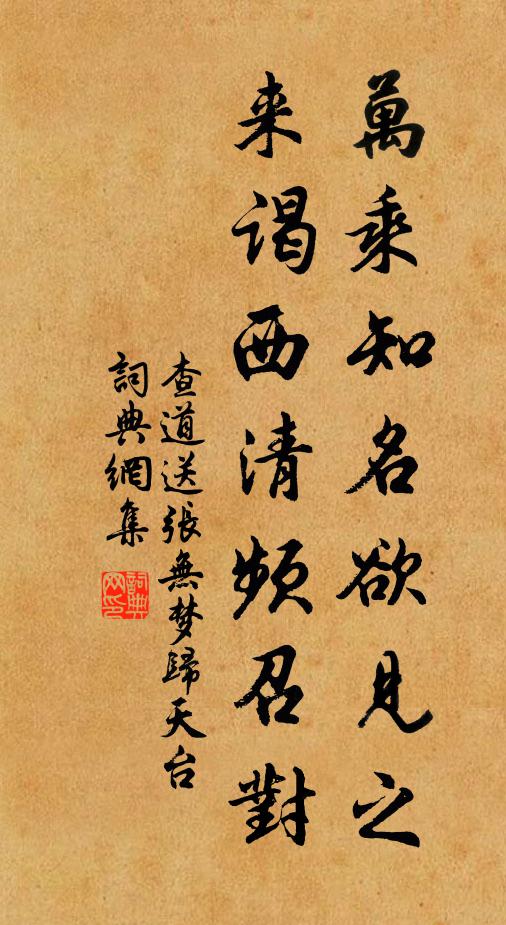 萬乘知名欲見之
来谒西清频召對
查道送張無梦歸天台
詞典網集
詞典网印